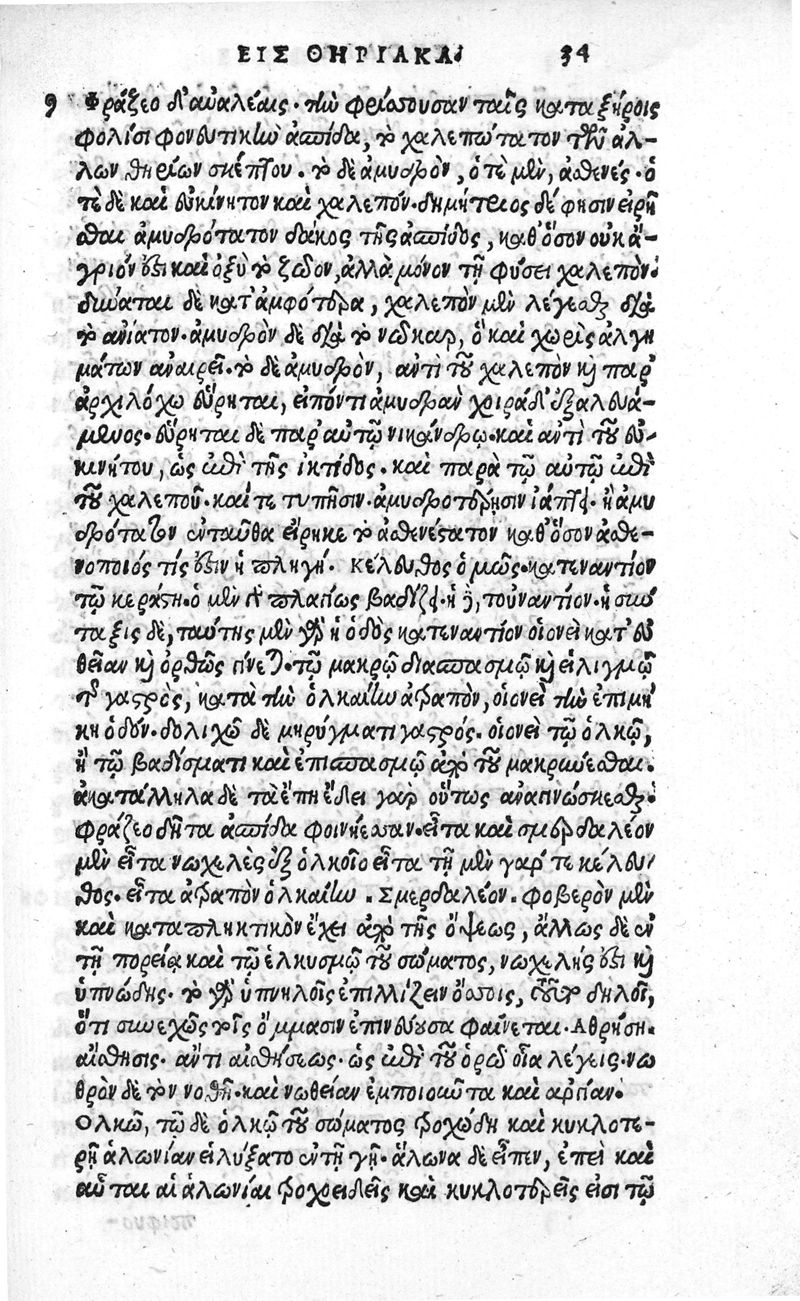 ΕΙΣ ΘΗΡΙΑΚΑ. 34
9 Φράζεο δ' αὐαλέαις. τὴν φρίσσουσαν ταῖς καταξήροις
φολίσι φονευτικὴν ἀσπίδα, τὸ χαλεπώτατον τῶν ἀλ-
λων θηρίων σκέπτου. τὸ δὲ ἀμυδρὸν, ὁτὲ μὲν, ἀσθενές. ὁ
τὲ δὲ καὶ δυκίνητον καὶ χαλεπόν. δημήτριος δέ φησιν εἰρῆ
σθαι ἀμυδρότατον δάκος τῆς ἀσπίδος, καθ' ὅσον οὐκ ἄ-
γριόν ἐστι καὶ ὀξὺ τὸ ζῶον, ἀλλὰ μόνον τῇ φύσει χαλεπόν.
δύναται δὲ κατ' ἀμφότερα, χαλεπὸν μὲν λέγεσθαι διὰ
τὸ ἀνίατον. ἀμυδρὸν δὲ διὰ τὸ νωκαρ, ὃ καὶ χωρὶς ἀλγη
μάτων ἀναιρεῖ. τὸ δὲ ἀμυδρὸν, ἀντὶ τοῦ χαλεπὸν καὶ παρ'
ἀρχιλόχω εὕρηται, εἰπόντι ἀμυδρὰν χοιράδ' ἐξαλευά-
μενος. εὕρηται δὲ παρ' αὐτῷ νικάνδρῳ. καὶ ἀντὶ τοῦ εὐ-
κινήτου, ὡς ἐπὶ τῆς ἰκτίδος. καὶ παρὰ τῷ αὐτῷ ἐπὶ
τοῦ χαλεποῦ. καί τε τυπῆσιν. ἀμυδροτέρησιν ἰάπτει. ἢ ἀμυ
δρότατον ἐνταῦθα εἴρηκε τὸ ἀσθενέστατον καθ' ὅσον ἀσθε-
νοποιός τίς ἐστιν ἡ πληγή. Κέλευθος ὁμῶς. κατεναντίον
τῷ κεράστῃ. ὁ μὲν γὰρ πλαγίως βαδίζει. ἡ δὲ, τοὐναντίον. ἡ σύν
ταξις δὲ, ταύτης μὲν γὰρ ἡ ὁδὸς κατεναντίον οἱονεὶ κατ' εὐ
θεῖαν καὶ ὀρθῶς γίνεται. τῷ μακρῷ διασπασμῷ καὶ εἱλιγμῷ
τῆς γαστρὸς, κατὰ τὴν ὁλκαίην ἀτραπὸν, οἱονεὶ τὴν ἐπιμή
κη ὁδόν. δολιχῷ δὲ μηρύγματι γαστρός. οἱονεὶ τῷ ὁλκῷ,
ἢ τῷ βαδίσματι καὶ ἐπισπασμῷ ἀπὸ τοῦ μακρύνεσθαι.
ἀκατάλληλα δὲ τὰ ἔπη ἔδει γὰρ οὕτως ἀναγινώσκεσθαι.
Φράζεο δῆτα ἀσπίδα φοινήεσσαν. εἶτα καὶ σμερδαλέον
μὲν εἶτα νωχελὲς ἐξ ὁλκοῖο εἶτα τῇ μὲν γάρ τε κέλευ-
θος. εἶτα ἀτραπὸν ὁλκαίην. Σμερδαλέον. φοβερὸν μὲν
καὶ καταπληκτικὸν ἔχει ἀπὸ τῆς ὄψεως, ἄλλως δὲ ἐν
τῇ πορείᾳ καὶ τῷ ἑλκυσμῷ τοῦ σώματος, νωχελής ἐστι καὶ
ὑπνώδης. τὸ γὰρ ὑπνηλοῖς ἐπιλλίζειν ὄσσοις, τοῦτο δηλοῖ,
ὅτι συνεχῶς τοῖς ὄμμασιν ἐπινεύουσα φαίνεται. Αθρήση.
αἴσθησις. ἀντὶ αἰσθήσεως. ὡς ἐπὶ τοῦ ὁρῶ οἷα λέγεις. νω
θρὸν δὲ τὸν νοθῆ. καὶ νωθείαν ἐμποιοῦντα καὶ ἀργίαν.
Ολκῶ, τῷ δὲ ὁλκῷ τοῦ σώματος τροχώδη καὶ κυκλοτε-
ρῆ ἁλωνίαν εἱλύξατο ἐν τῇ γῇ. ἅλωνα δὲ εἶπεν, ἐπεὶ καὶ
αὗται αἱ ἁλωνίαι τροχοειδεῖς καὶ κυκλοτερεῖς εἰσι τῷ